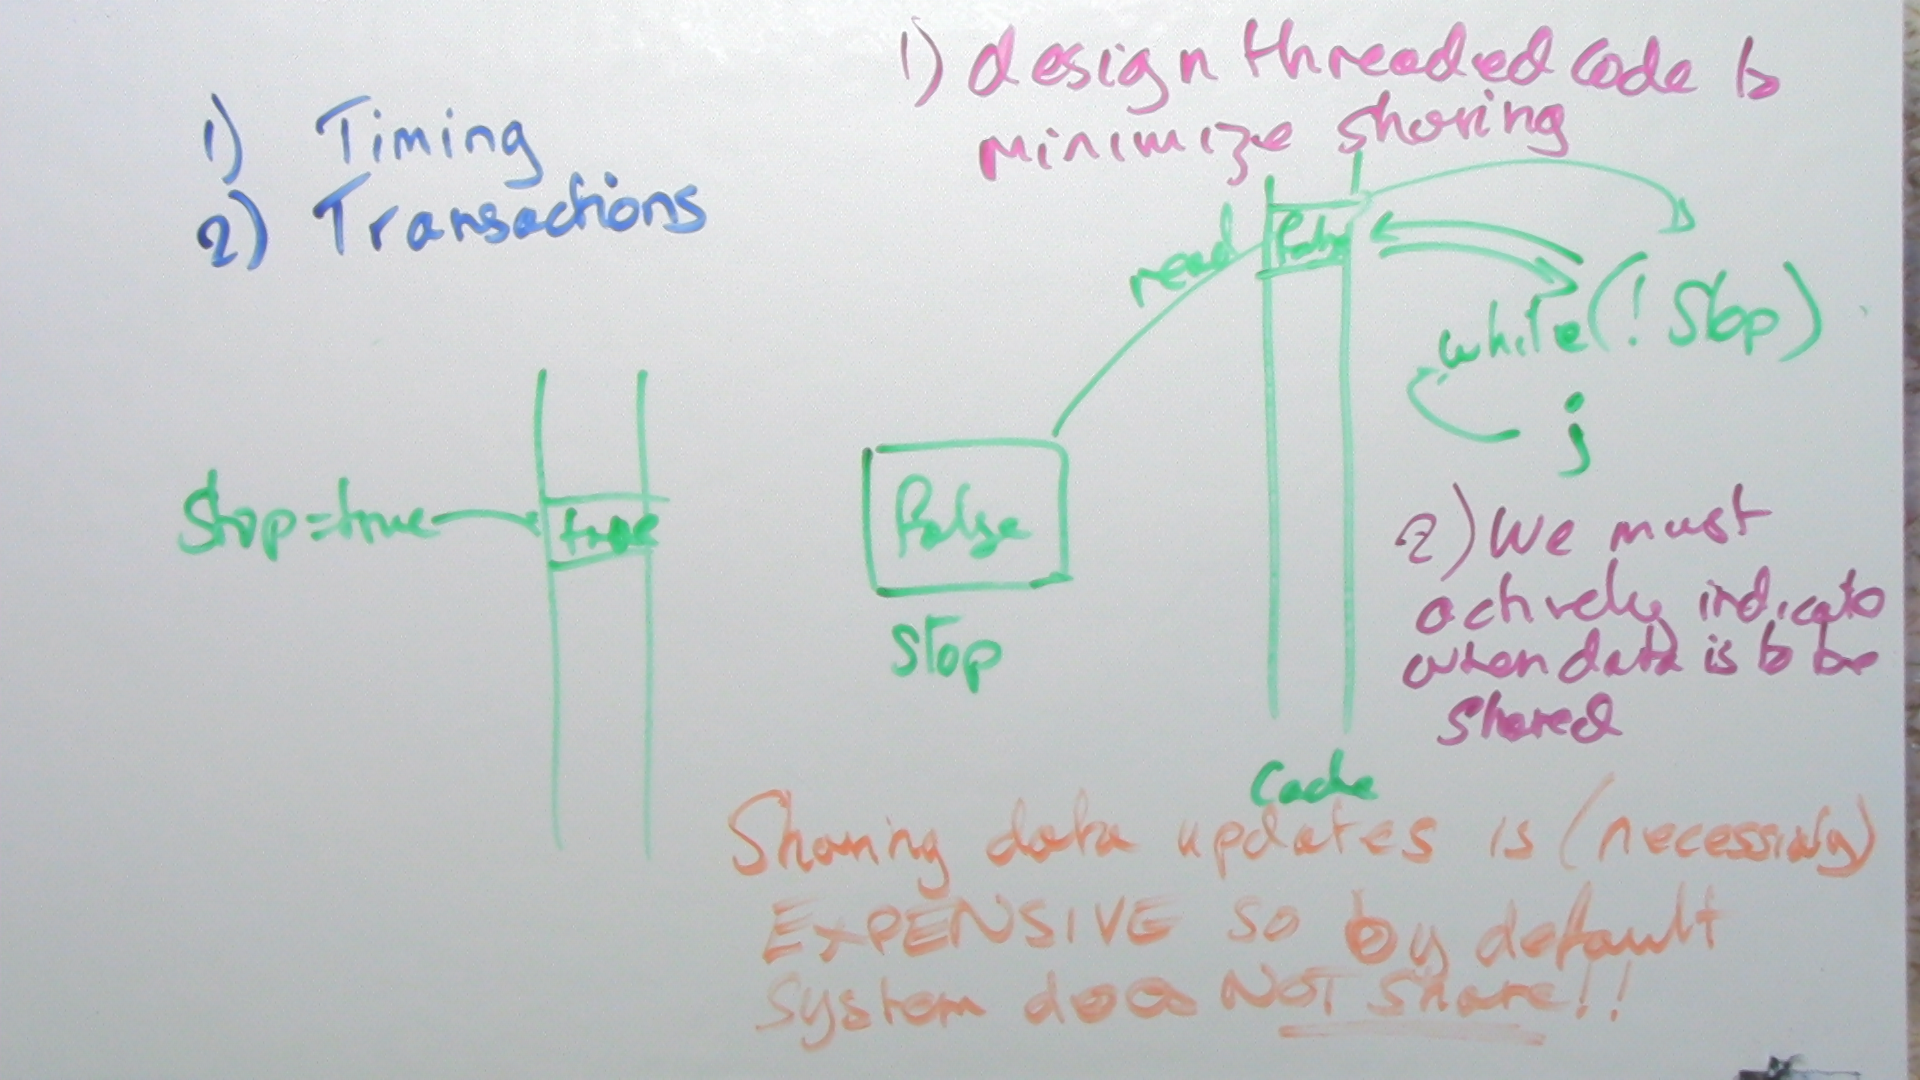 1) Timing
2) Transactions
1) design threaded code to
minimize sharing
read
false
while(! Stop)
;
Stop=true
true
false
Stop
Cache
2) We must
actively indicate
when data is to be
shared
Sharing data updates is (necessarily)
EXPENSIVE so by default
System does NOT share!!